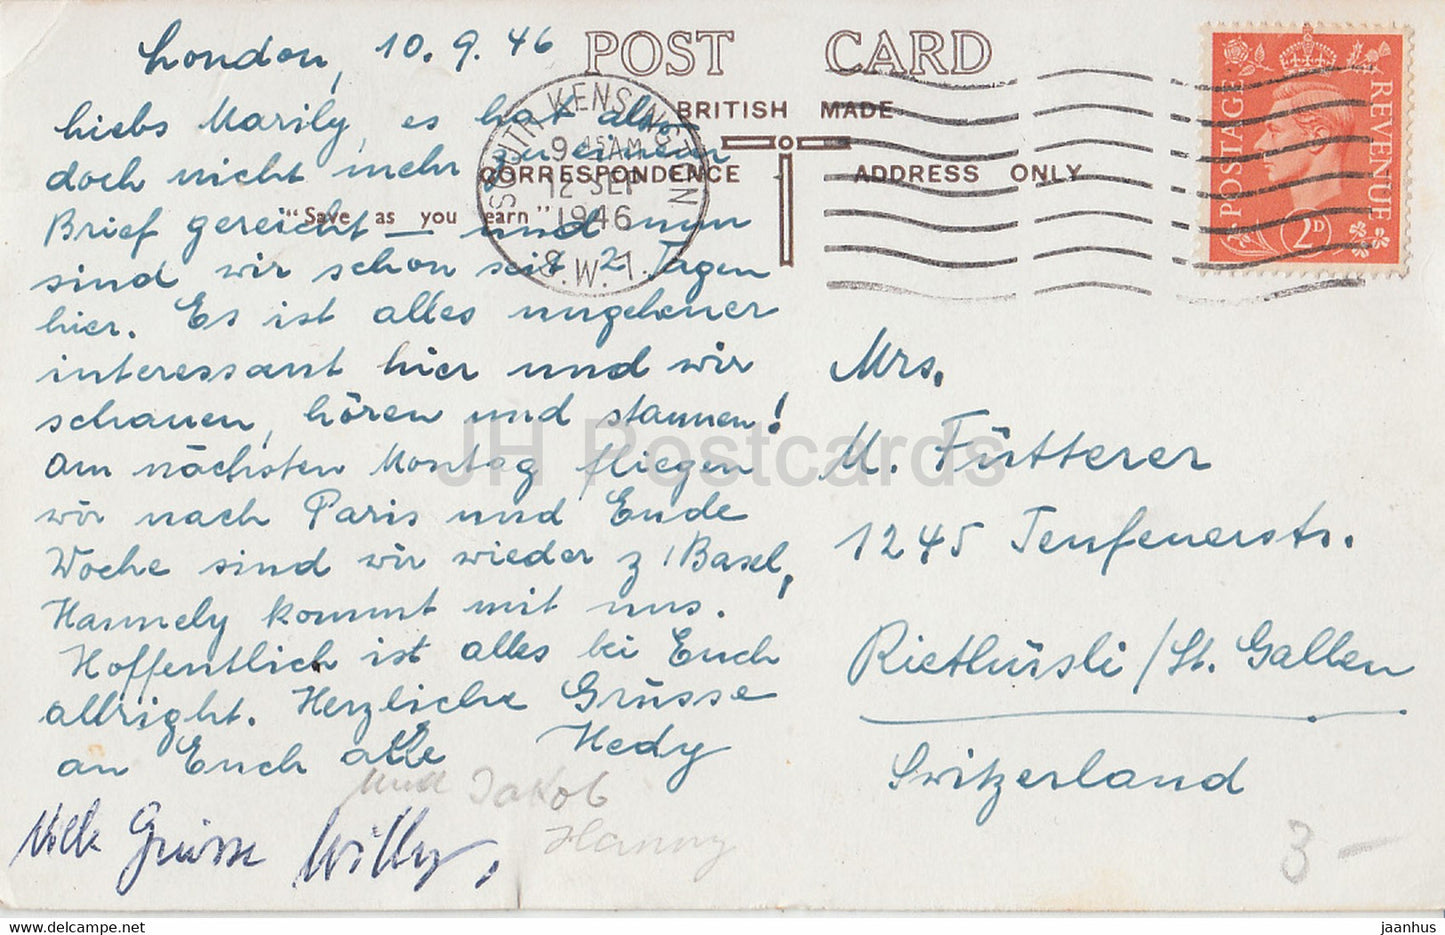 London, 10. 9. 46
POST CARD
BRITISH MADE
CORRESPONDENCE ADDRESS ONLY
"Save as you earn"
SOUTH KENSINGTON
9 45AM
12 SEP
1946
S.W.7.
POSTAGE REVENUE
2D
liebs Marily, es hat also
doch nicht mehr zu einem
Brief gereicht — und nun
sind wir schon seit 2 Tagen
hier. Es ist alles ungeheuer
interessant hier und wir
schauen, hören und staunen!
Am nächsten Montag fliegen
wir nach Paris und Ende
Woche sind wir wieder z/Basel,
Hannely kommt mit uns.
Hoffentlich ist alles bei Euch
allright. Herzliche Grüsse
an Euch alle Hedy
und Jakob
Hanny
Grüsse Willy,
Mrs.
M. Fütterer
1245 Teufenerstr.
Riethüsli / St. Gallen
Switzerland
3 —
JH Postcards
www.delcampe.net
jaanhus